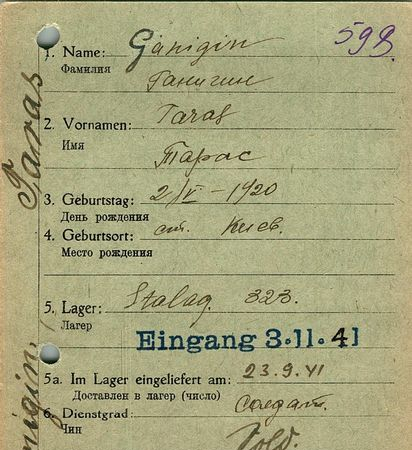 598
1. Name: Ganigin
Фамилия
Ганигин
2. Vornamen: Taras
Имя
Тарас
3. Geburtstag: 2/V – 1920
День рождения
4. Geburtsort: ст. Киев.
Место рождения
5. Lager: Stalag. 323.
Лагер
Eingang 3.11.41
5a. Im Lager eingeliefert am: 23.9.41
Доставлен в лагер (число)
6. Dienstgrad: солдат.
Чин
Sold.
Taras
nigin,